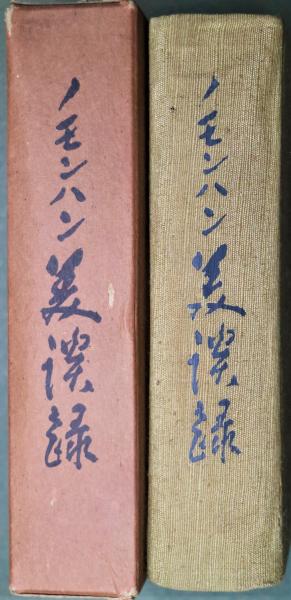 ノモンハン美談録
ノモンハン美談録